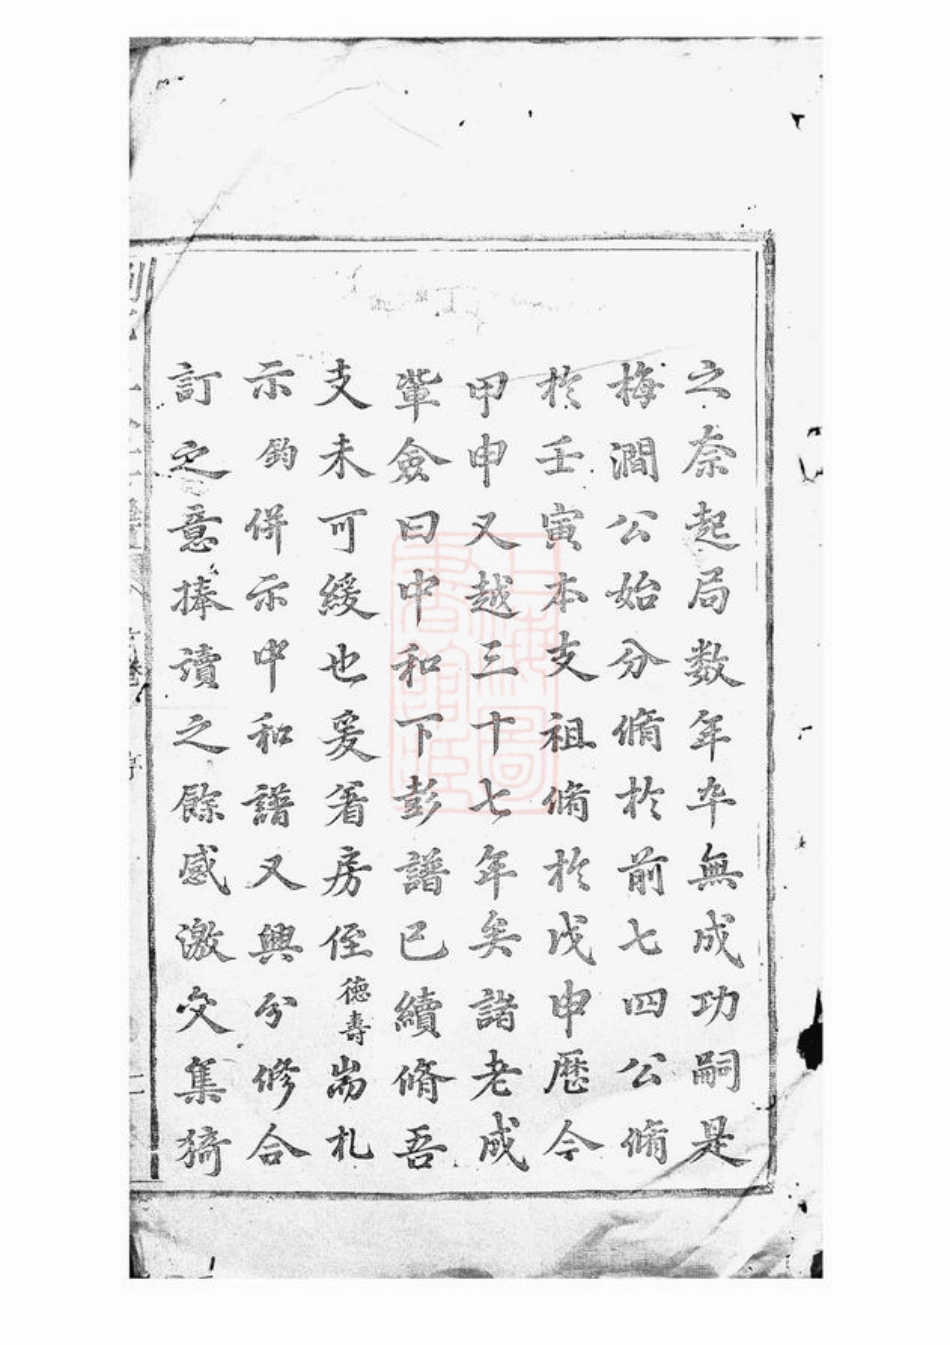 之奈起局数年卒無成功嗣是
梅澗公始分脩於前七四公脩
於壬寅本支祖脩於戊申歷今
甲申又越三十七年矣諸老成
軰僉曰中和下彭譜已續脩吾
支未可緩也爰着房侄德壽耑札
示鈞併示中和譜又興分修合
訂之意捧讀之餘感激交集猗